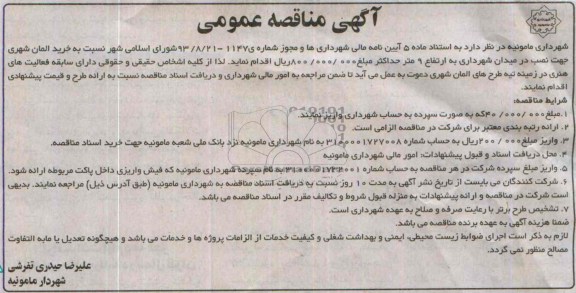 آگهی مناقصه عمومی
شهرداری مامونیه در نظر دارد به استناد ماده ۵ آیین نامه مالی شهرداری ها و مجوز شماره ی۱۱۴۷ -۹۳/۸/۲۱شورای اسلامی شهر نسبت به خرید المان شهری
جهت نصب در میدان شهرداری به ارتفاع ۹ متر حداکثر مبلغ۸۰۰/۰۰۰/۰۰۰ریال اقدام نماید. لذا از کلیه اشخاص حقیقی و حقوقی دارای سابقه فعالیت های
هنری در زمینه تیه طرح های المان شهری دعوت به عمل می آید تا ضمن مراجعه به امور مالی شهرداری و دریافت اسناد مناقصه نسبت به ارائه طرح و قیمت پیشنهادی
اقدام نمایند.
شرایط مناقصه:
۱. مبلغ۴۰/۰۰۰/۰۰۰که به صورت سپرده به حساب شهرداری واریز نمایند.
۲. ارائه رتبه بندی معتبر برای شرکت در مناقصه الزامی است.
۳. واریز مبلغ۲۰۰/۰۰۰ریال به حساب شماره ۳۱۰۰۰۰۱۷۲۷۰۰۸ به نام شهرداری مامونیه نزد بانک ملی شعبه مامونیه جهت خرید اسناد مناقصه.
۴. محل دریافت اسناد و قبول پیشنهادات: امور مالی شهرداری مامونیه
۵. واریز مبلغ سپرده شرکت در هر مناقصه به حساب شماره به نام سپرده شهرداری مامونیه که فیش واریزی داخل پاکت مربوطه ارائه شود.
۶. شرکت کنندگان می بایست از تاریخ نشر آگهی به مدت ۱۰ روز نسبت به دریافت اسناد مناقصه به شهرداری مامونیه (طبق آدرس ذیل) مراجعه نمایند. بدیهی
است شرکت در مناقصه و ارائه پیشنهادات به منزله قبول شروط و تکالیف مقرر در اسناد مناقصه می باشد.
۷. تشخیص طرح برتر با رعایت صرفه و صلاح به عهده شهرداری است.
ضمنا هزینه آگهی به عهده برنده مناقصه می باشد.
لازم به ذکر است اجرای ضوابط زیست محیطی، ایمنی و بهداشت شغلی و کیفیت خدمات از الزامات پروژه ها و خدمات می باشد و هیچگونه تعدیل یا مابه التفاوت
مصالح منظور نمی گردد.
علیرضا حیدری تفرشی
شهردار مامونیه